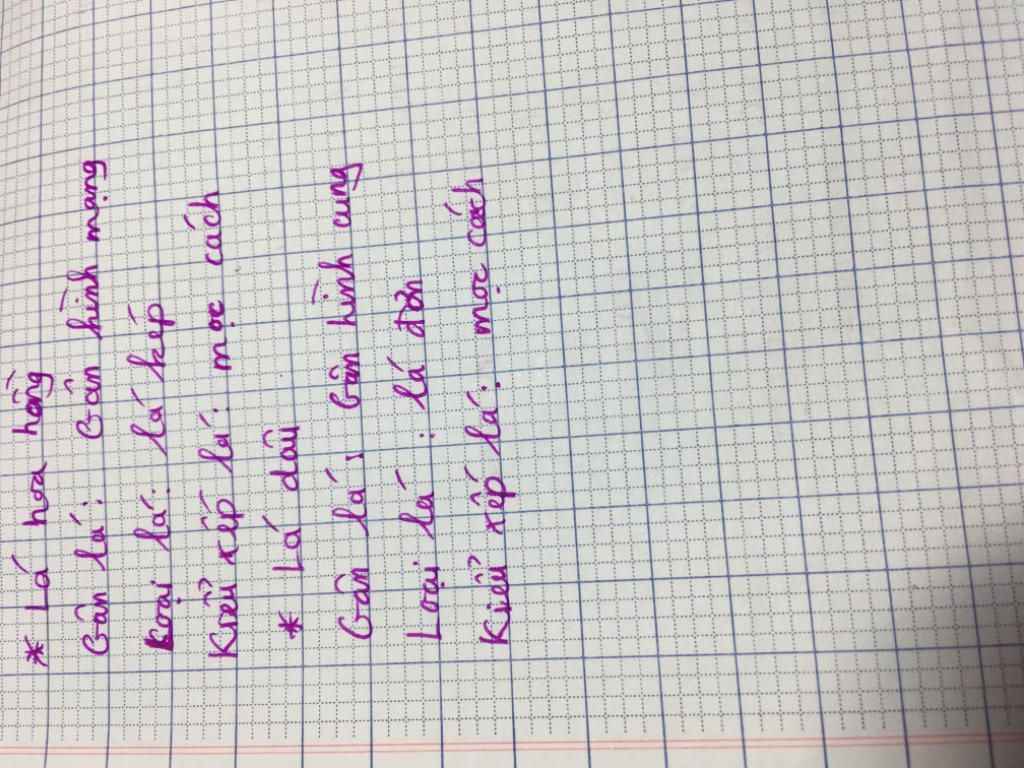 * Lá hoa hồng
Gân lá: Gân hình mạng
Loại lá: lá kép
Kiểu xếp lá: mọc cách
* Lá dâu
Gân lá: Gân hình cung
Loại lá: lá đơn
Kiểu xếp lá: mọc cách